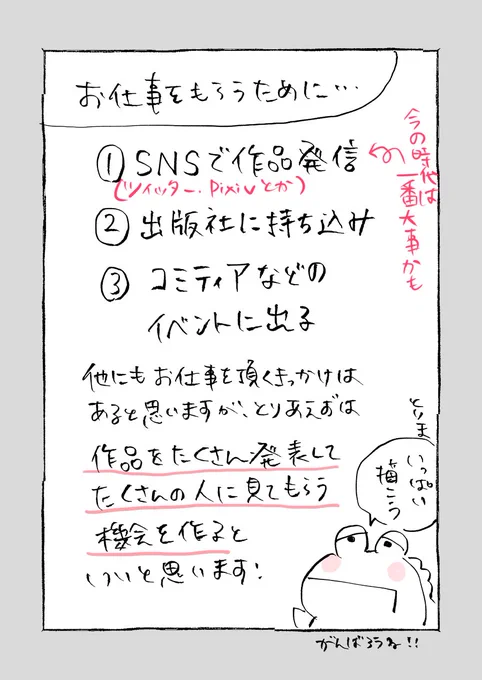 お仕事をもらうために…
① SNSで作品発信
(ツイッター、pixivとか)
今の時代は
一番大事かも
② 出版社に持ち込み
③ コミティアなどの
イベントに出る
他にもお仕事を頂くきっかけは
あると思いますが、とりあえずは
作品をたくさん発表して
たくさんの人に見てもらう
機会を作ると
いいと思います!
とりま
いっぱい
描こう
がんばろうね!!